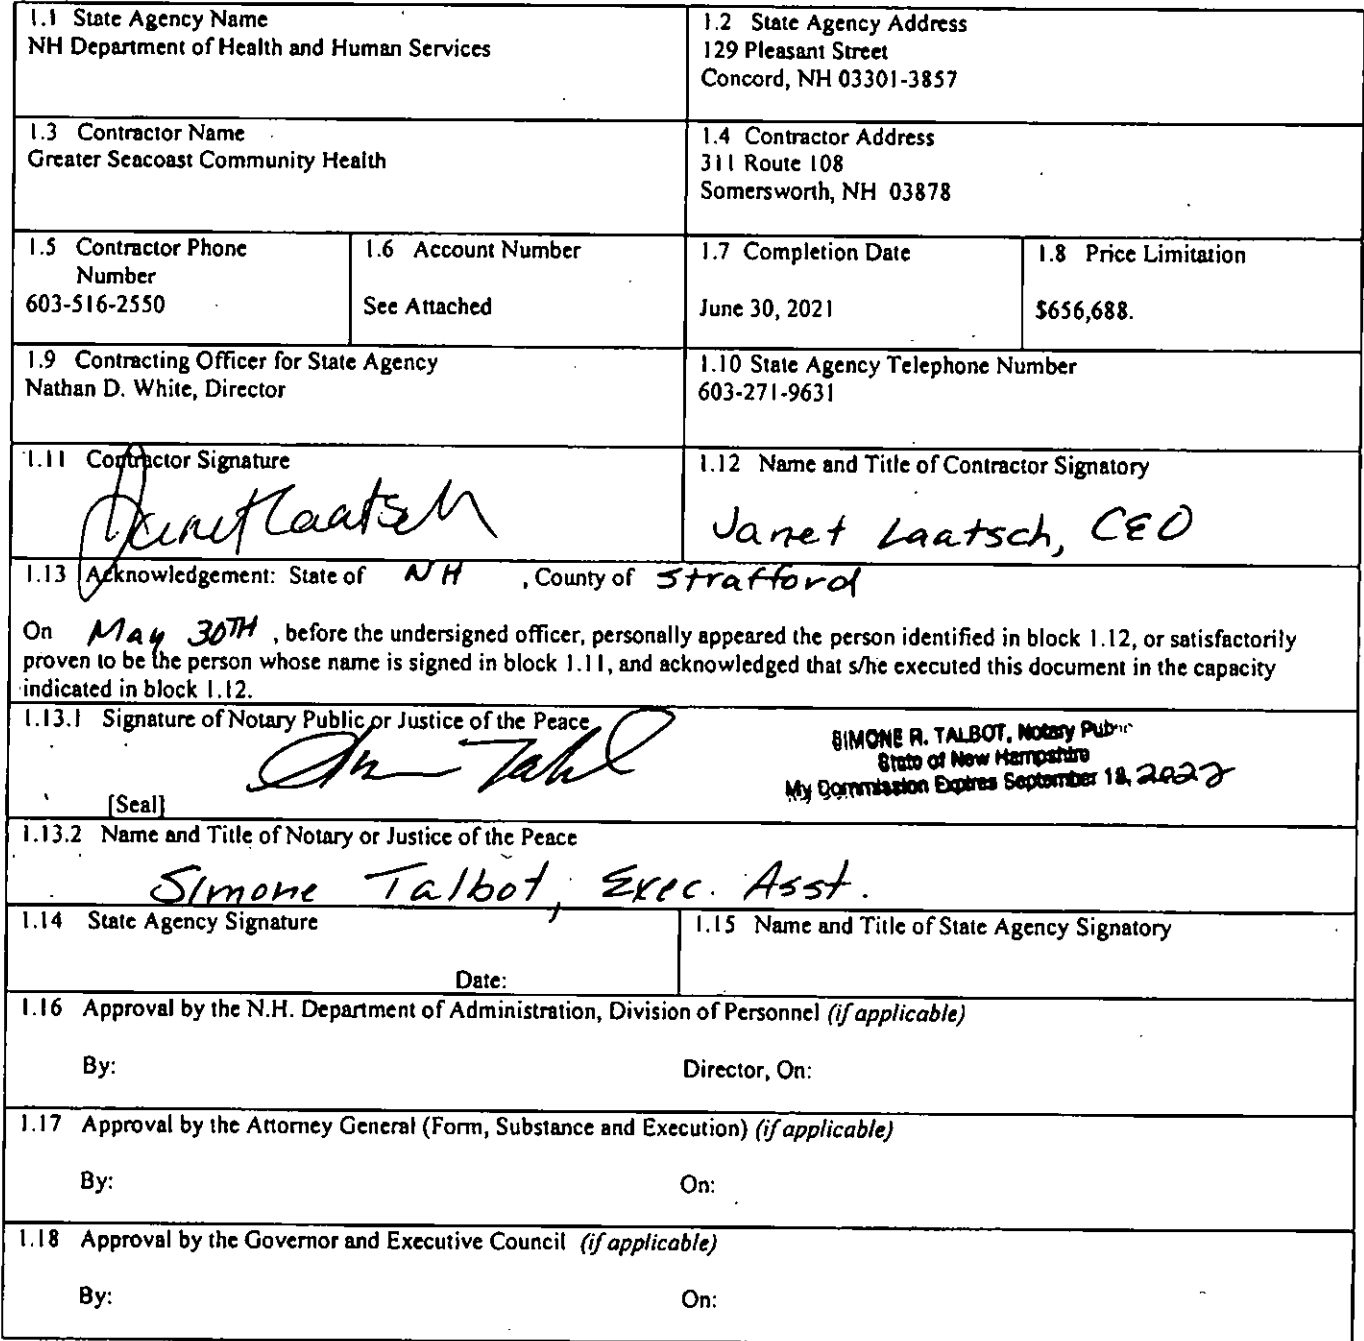 1.1 State Agency Name
NH Department of Health and Human Services
1.2 State Agency Address
129 Pleasant Street
Concord, NH 03301-3857
1.3 Contractor Name
Greater Seacoast Community Health
1.4 Contractor Address
311 Route 108
Somersworth, NH 03878
1.5 Contractor Phone
Number
603-516-2550
1.6 Account Number
See Attached
1.7 Completion Date
June 30, 2021
1.8 Price Limitation
$656,688.
1.9 Contracting Officer for State Agency
Nathan D. White, Director
1.10 State Agency Telephone Number
603-271-9631
1.11 Contractor Signature
Janet Laatsch
1.12 Name and Title of Contractor Signatory
Janet Laatsch, CEO
1.13 Acknowledgement: State of NH , County of Strafford
On May 30TH , before the undersigned officer, personally appeared the person identified in block 1.12, or satisfactorily
proven to be the person whose name is signed in block 1.11, and acknowledged that s/he executed this document in the capacity
indicated in block 1.12.
1.13.1 Signature of Notary Public or Justice of the Peace
[Seal]
SIMONE R. TALBOT, Notary Public
State of New Hampshire
My Commission Expires September 18, 2022
1.13.2 Name and Title of Notary or Justice of the Peace
Simone Talbot, Exec. Asst.
1.14 State Agency Signature
Date:
1.15 Name and Title of State Agency Signatory
1.16 Approval by the N.H. Department of Administration, Division of Personnel (if applicable)
By: Director, On:
1.17 Approval by the Attorney General (Form, Substance and Execution) (if applicable)
By: On:
1.18 Approval by the Governor and Executive Council (if applicable)
By: On: